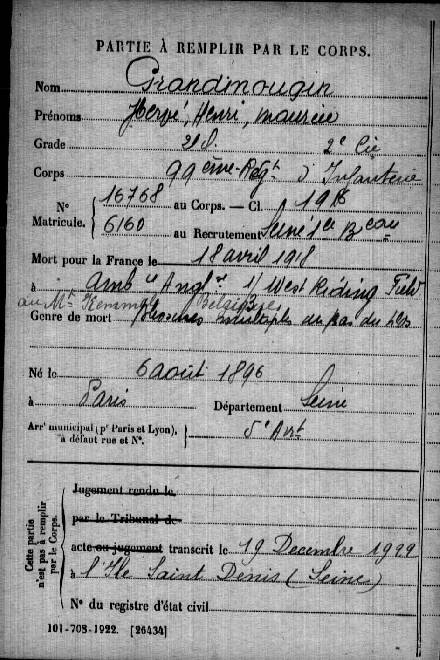 PARTIE À REMPLIR PAR LE CORPS.
Nom Grandmougin
Prénoms Hervé, Henri, Maurice
Grade 2e Cie
Corps 99ème Régt d'Infanterie
N° Matricule. 16768 au Corps. — Cl. 1916
6160 au Recrutement Seine 1er Bcau
Mort pour la France le 18 avril 1918
à Amb ce Angl se 1/ West Riding Field
au Mt Kemmel Belgique
Genre de mort Blessures multiples
Né le 6 août 1896
à Paris Département Seine
Arrt municipal (pr Paris et Lyon), à défaut rue et N°. 5e Arrt
Cette partie n'est pas à remplir par le Corps.
Jugement rendu le
par le Tribunal de
acte ou jugement transcrit le 19 Decembre 1922
à l'Ile Saint Denis (Seine)
N° du registre d'état civil
101-708-1922. [26434]